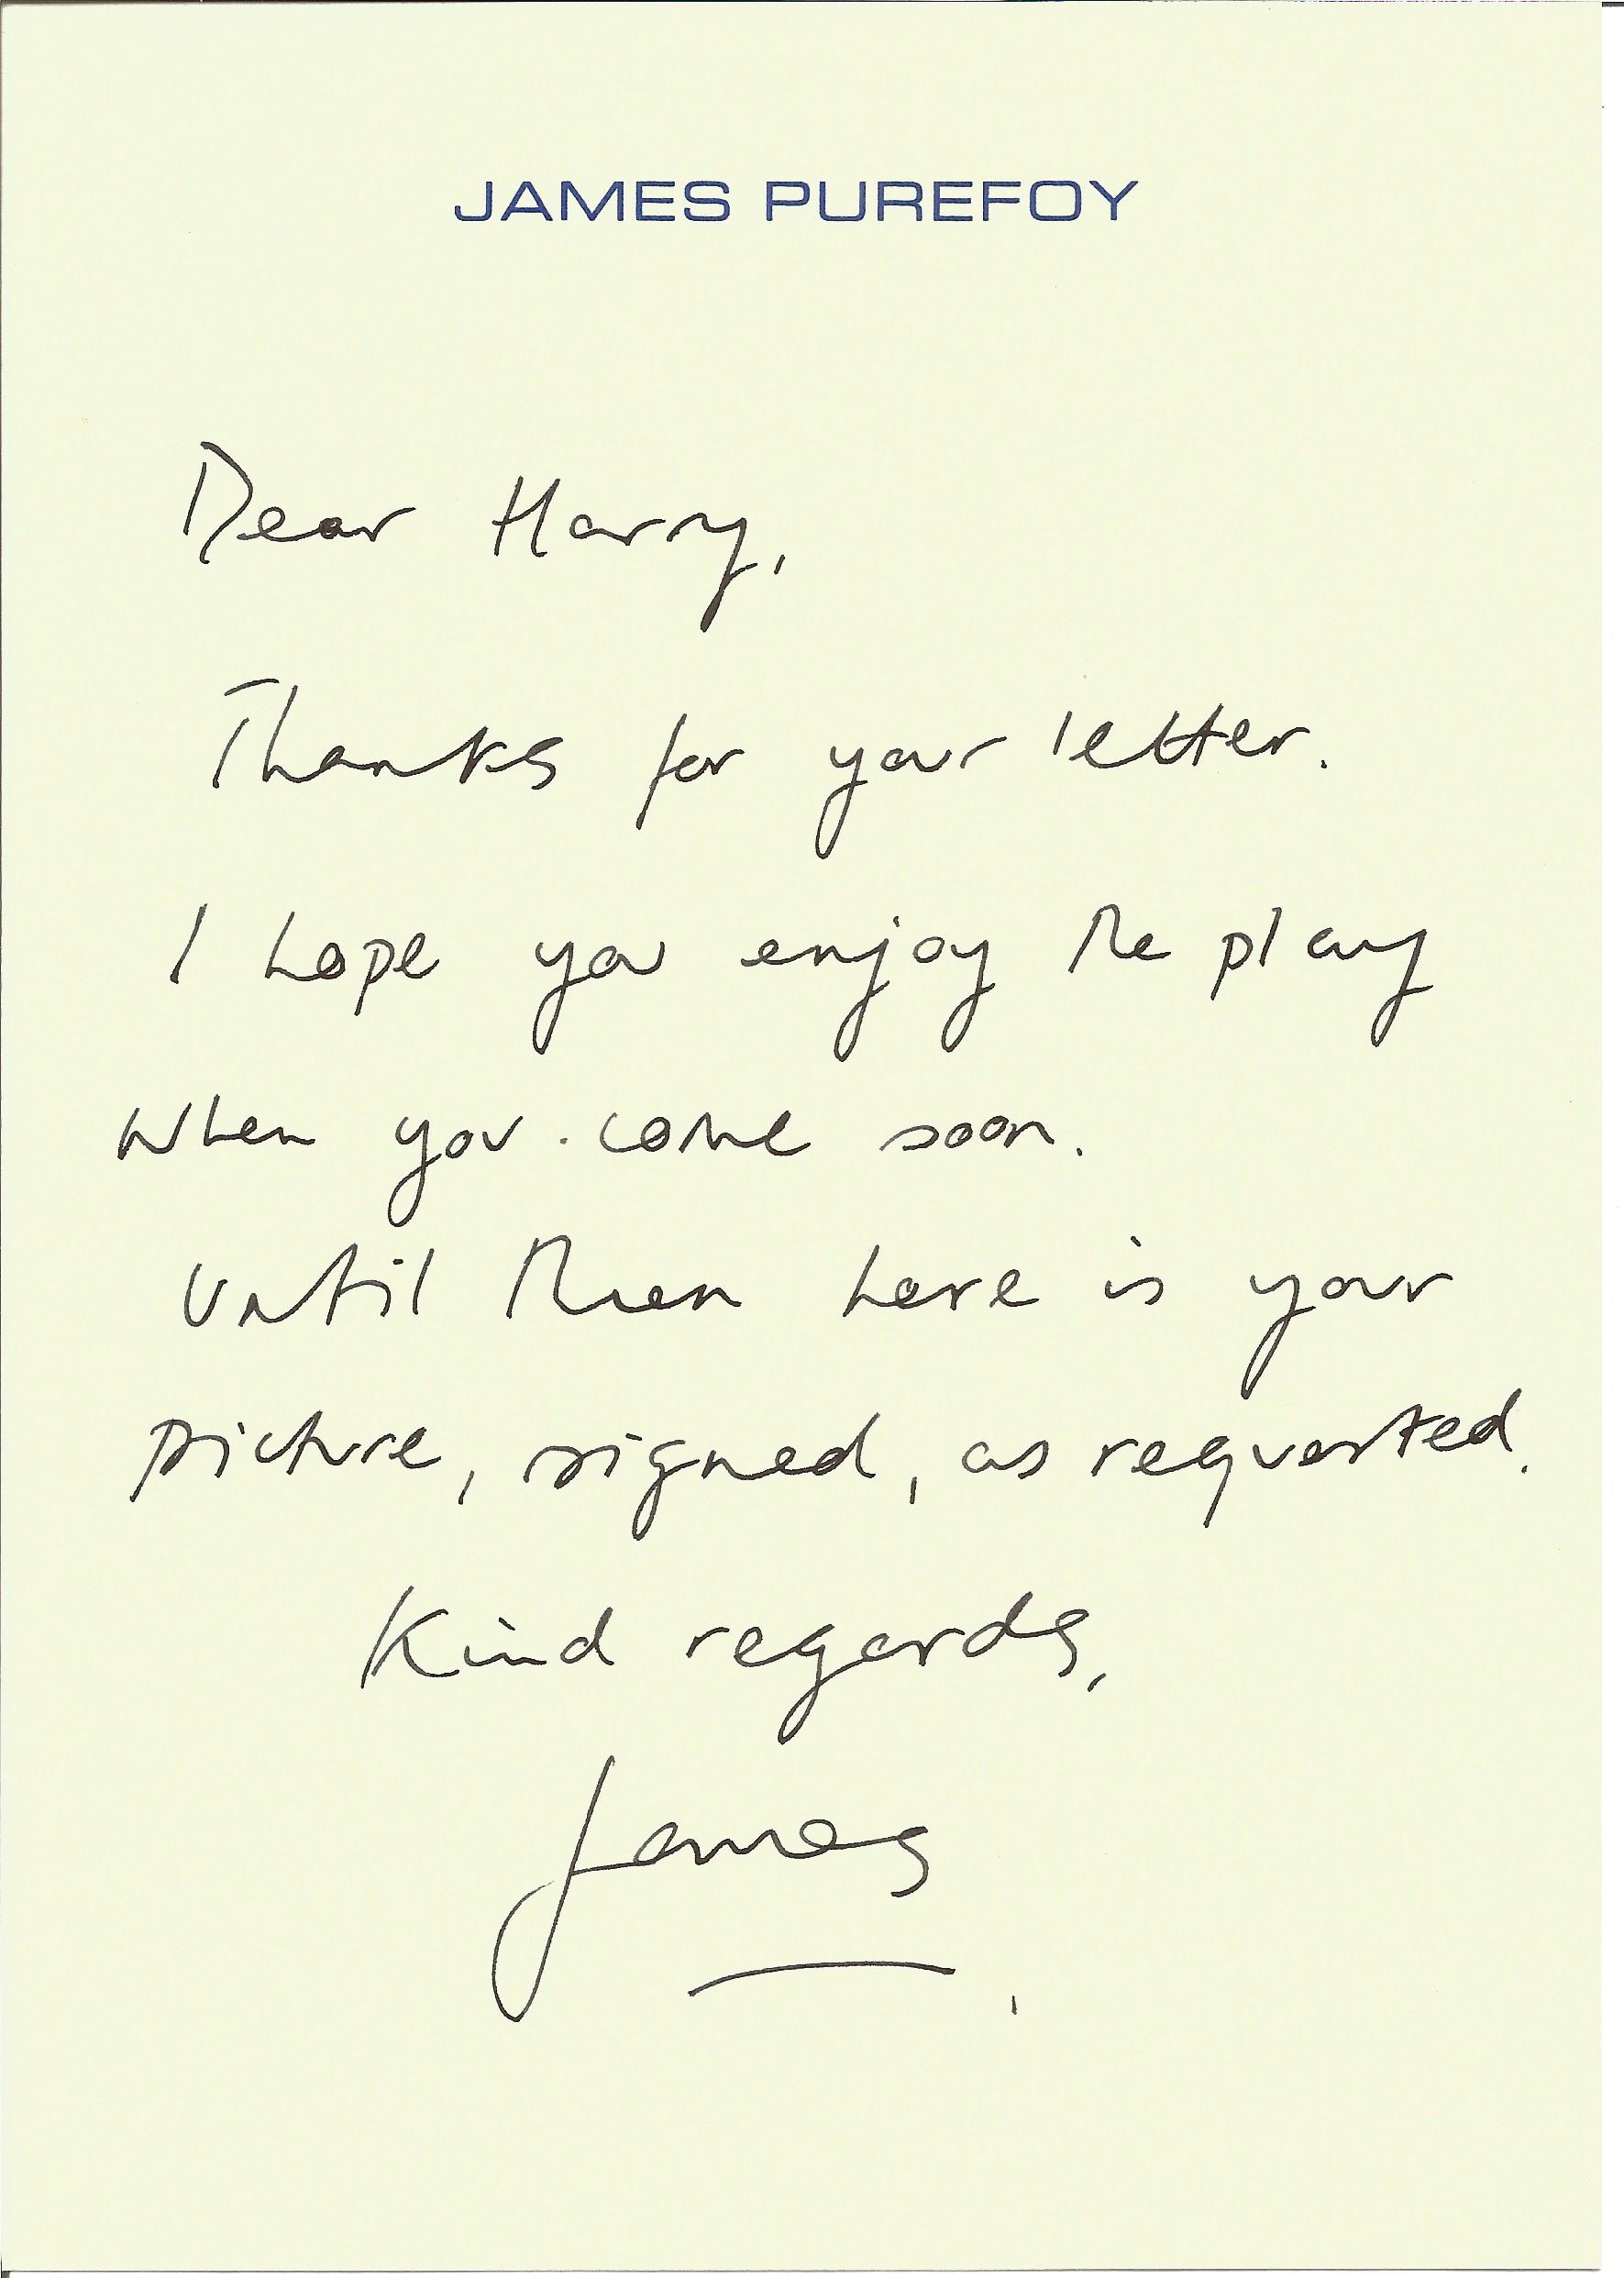 JAMES PUREFOY
Dear Harry,
Thanks for your letter.
I hope you enjoy the play
when you come soon.
Until then here is your
picture, signed, as requested.
Kind regards,
James